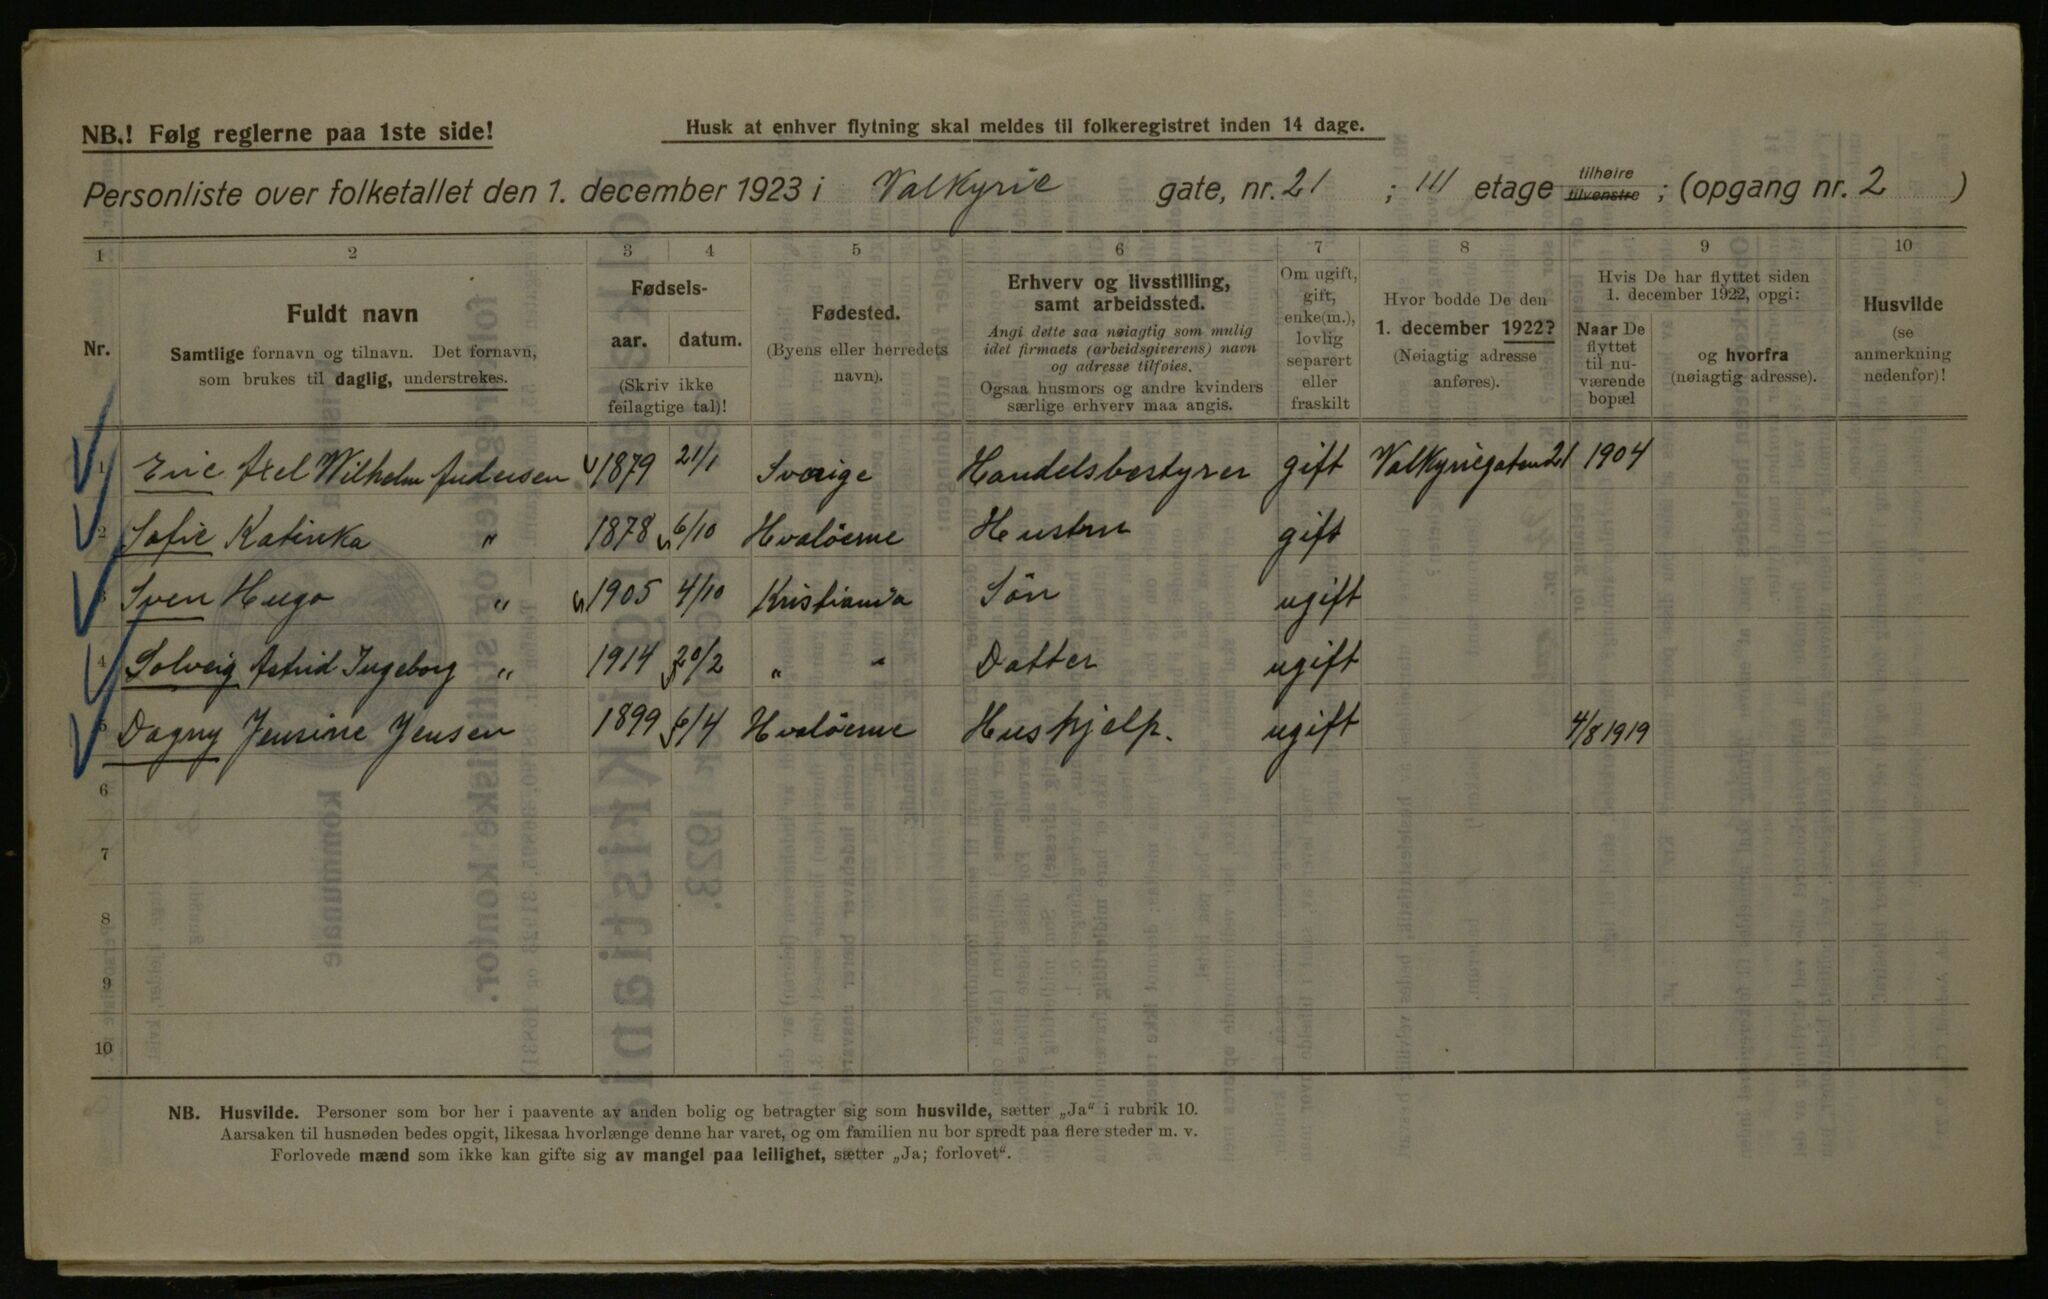 NB.! Følg reglerne paa 1ste side!
Husk at enhver flytning skal meldes til folkeregistret inden 14 dage.
Personliste over folketallet den 1. december 1923 i Valkyrie gate, nr. 21 ; III etage tilhøire tilvenstre ; (opgang nr. 2 )
1 2 3 4 5 6 7 8 9 10
Nr.
Fuldt navn
Samtlige fornavn og tilnavn. Det fornavn,
som brukes til daglig, understrekes.
Fødsels-
aar. datum.
(Skriv ikke
feilagtige tal)!
Fødested.
(Byens eller herredets
navn).
Erhverv og livsstilling,
samt arbeidssted.
Angi dette saa nøiagtig som mulig
idet firmaets (arbeidsgiverens) navn
og adresse tilføies.
Ogsaa husmors og andre kvinders
særlige erhverv maa angis.
Om ugift,
gift,
enke(m.),
lovlig
separert
eller
fraskilt
Hvor bodde De den
1. december 1922?
(Nøiagtig adresse
anføres).
Hvis De har flyttet siden
1. december 1922, opgi:
Naar De
flyttet
til nu-
værende
bopæl
og hvorfra
(nøiagtig adresse).
Husvilde
(se
anmerkning
nedenfor)!
1 Eric Axel Wilhelm Andersen 1879 21/1 Sverige Handelsbestyrer gift Valkyriegaten 21 1904
2 Sofie Katinka " 1878 6/10 Hvaløerne Hustru gift
3 Sven Hugo " 1905 4/10 Kristiania Sön ugift
4 Solveig Astrid Ingeborg " 1914 20/2 " " Datter ugift
5 Dagny Jensine Jensen 1899 6/4 Hvaløerne Hushjelp. ugift 4/8 1919
6
7
8
9
10
NB. Husvilde. Personer som bor her i paavente av anden bolig og betragter sig som husvilde, sætter „Ja“ i rubrik 10.
Aarsaken til husnøden bedes opgit, likesaa hvorlænge denne har varet, og om familien nu bor spredt paa flere steder m. v.
Forlovede mænd som ikke kan gifte sig av mangel paa leilighet, sætter „Ja; forlovet“.